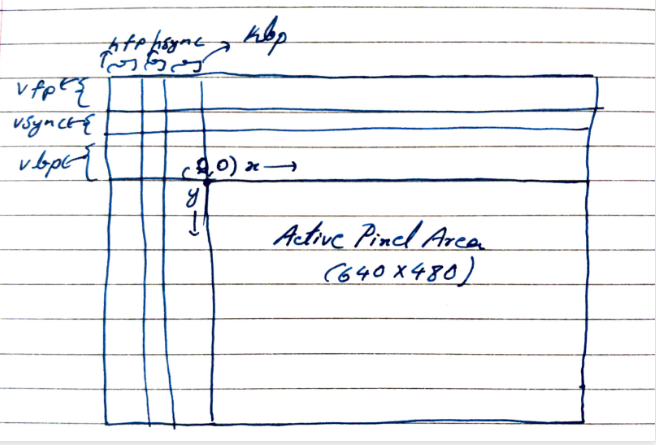 hfp hsync hbp
vfp
vsync
vbp
(0,0) x →
y
↓
Active Pixel Area
(640 x 480)